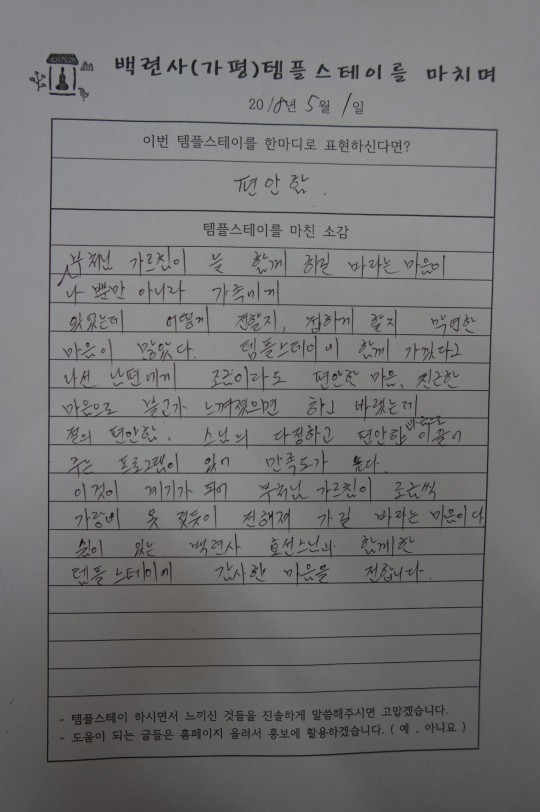 백련사(가평)템플스테이를 마치며
2018년 5월 1일
이번 템플스테이를 한마디로 표현하신다면?
편안함.
템플스테이를 마친 소감
부처님 가르침이 늘 함께 하길 바라는 마음이
나 뿐만 아니라 가족에게
있었는데 어떻게 전할지, 접하게 할지 막연한
마음이 많았다. 템플스테이에 함께 가겠다고
나선 남편에게 조금이라도 편안한 마음, 친근한
마음으로 불교가 느껴졌으면 하고 바랬는데
절의 편안함. 스님의 다정하고 편안함 바탕으로 이끌어
주는 프로그램이 있어 만족도가 높다.
이것이 계기가 되어 부처님 가르침이 조금씩
가랑비 옷 젖듯이 전해져 가길 바라는 마음이다
쉼이 있는 백련사 효선스님과 함께한
템플스테이에 감사한 마음을 전합니다.
- 템플스테이 하시면서 느끼신 것들을 진솔하게 말씀해주시면 고맙겠습니다.
- 도움이 되는 글들은 홈페이지 올려서 홍보에 활용하겠습니다.( 예 , 아니요 )